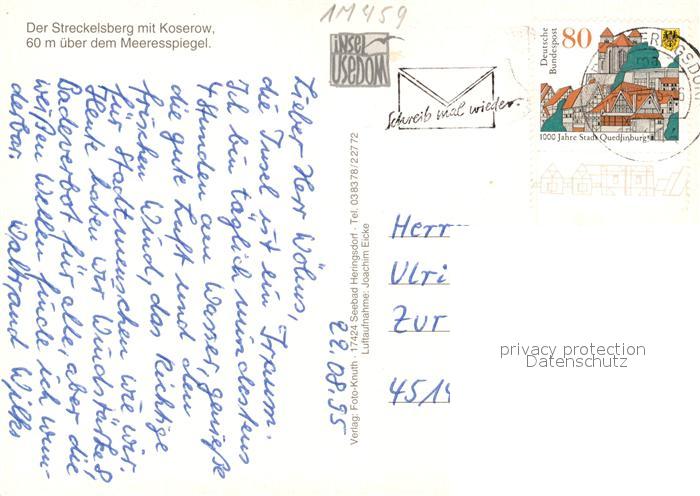 Der Streckelsberg mit Koserow,
60 m über dem Meeresspiegel.
1M459
insel
USEDOM
Schreib mal wieder.
Deutsche
Bundespost
80
1000 Jahre Stadt Quedlinburg
HERINGSDORF
Lieber Herr Wöhns,
die Insel ist ein Traum.
Ich bin täglich mindestens
4 Stunden am Wasser, genieße
die gute Luft und den
frischen Wind, das Richtige
für Stadtmenschen wie wir.
Heute haben wir Windstärke 8,
Badeverbot für alle, aber die
weißen Wellen finde ich wun-
derbar. Waltraud Wilks
22.08.95
Verlag: Foto-Knuth · 17424 Seebad Heringsdorf · Tel. 038378/22772
Luftaufnahme: Joachim Eicke
Herr
Ulri
Zur
4514
privacy protection
Datenschutz